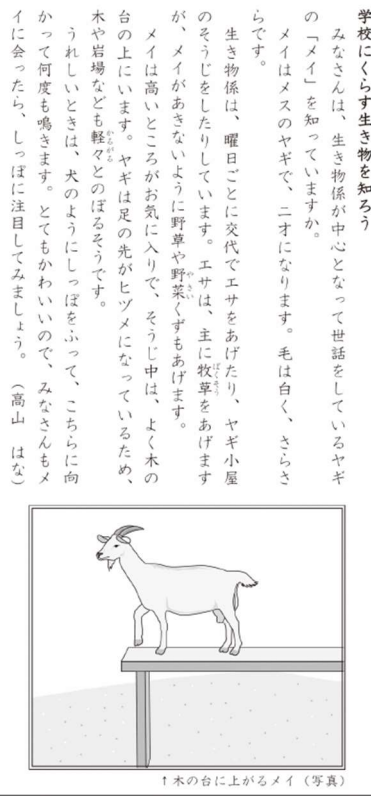 学校にくらす生き物を知ろう
みなさんは、生き物係が中心となって世話をしているヤギ
の「メイ」を知っていますか。
メイはメスのヤギで、二才になります。毛は白く、さらさ
らです。
生き物係は、曜日ごとに交代でエサをあげたり、ヤギ小屋
のそうじをしたりしています。エサは、主に牧草をあげます
が、メイがあきないように野草や野菜くずもあげます。
メイは高いところがお気に入りで、そうじ中は、よく木の
台の上にいます。ヤギは足の先がヒヅメになっているため、
木や岩場なども軽々とのぼるそうです。
うれしいときは、犬のようにしっぽをふって、こちらに向
かって何度も鳴きます。とてもかわいいので、みなさんもメ
イに会ったら、しっぽに注目してみましょう。（高山 はな）
↑木の台に上がるメイ（写真）